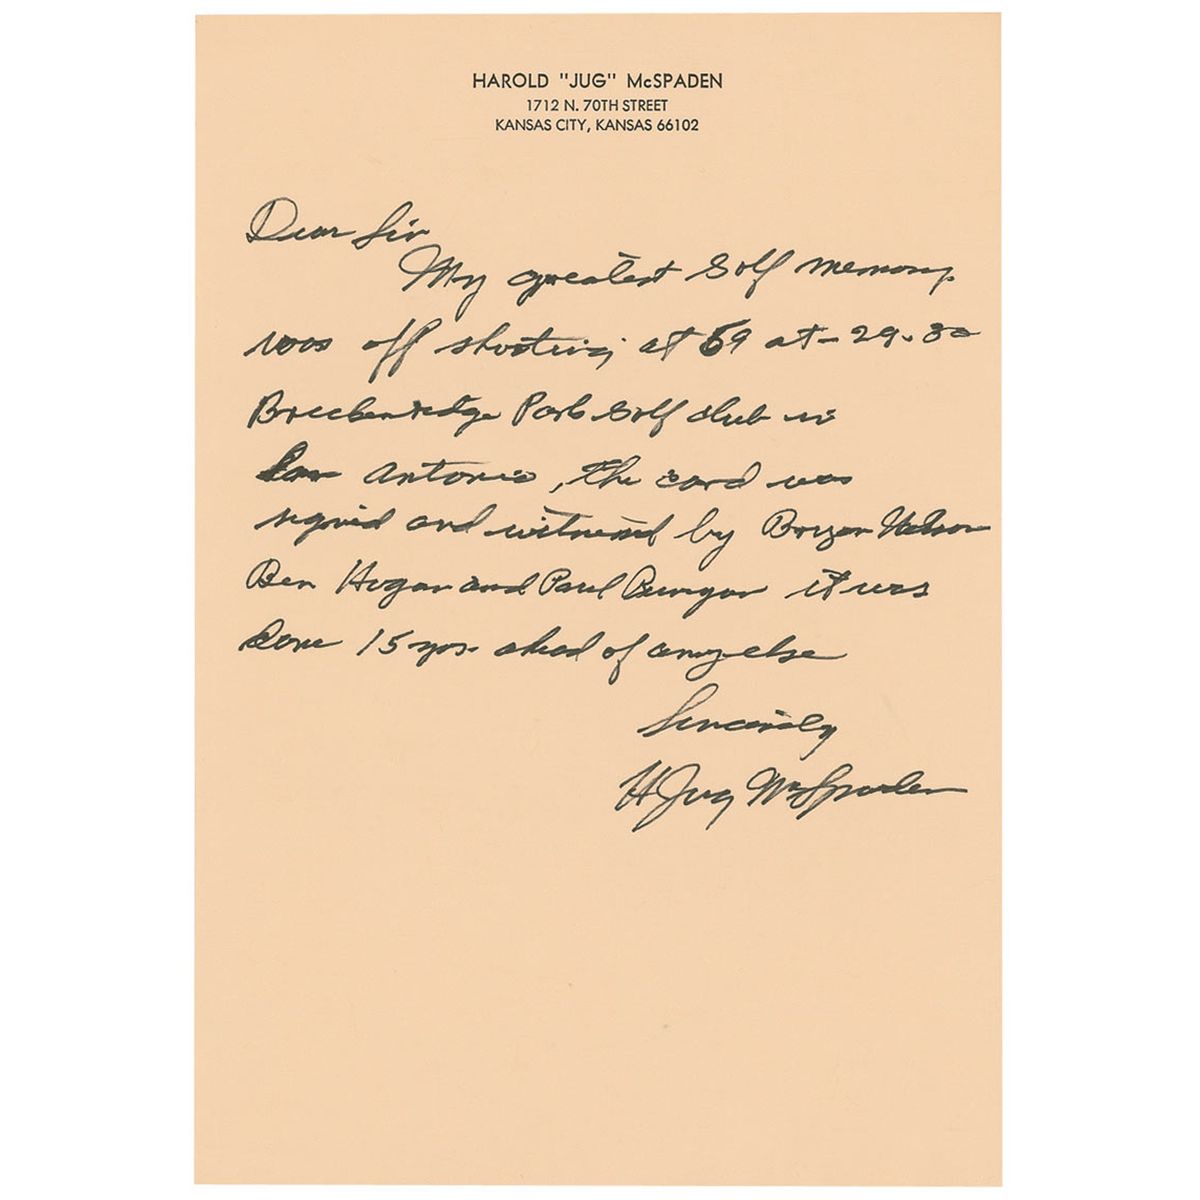 HAROLD "JUG" McSPADEN
1712 N. 70TH STREET
KANSAS CITY, KANSAS 66102
Dear Sir
My greatest Golf memory
was off shooting at 59 at - 29-30
Breckenridge Park Golf club in
San Antonio, the card was
signed and witnessed by Bryon Nelson
Ben Hogan and Paul Runyan it was
done 15 yrs. ahead of any else
Sincerely
H Jug McSpaden